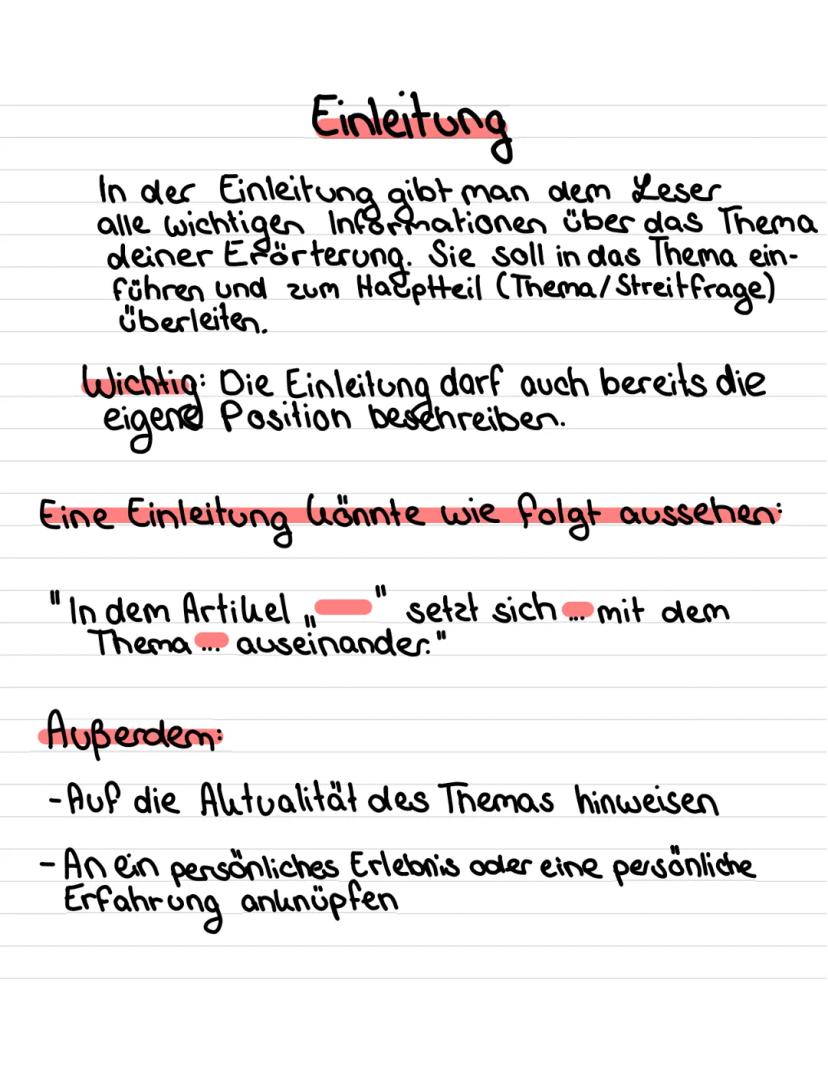 Einleitung
In der Einleitung gibt man dem Leser
alle wichtigen Informationen über das Thema
deiner Erörterung. Sie soll in das Thema ein-
führen und zum Hauptteil (Thema/Streitfrage)
überleiten.
Wichtig: Die Einleitung darf auch bereits die
eigene Position beschreiben.
Eine Einleitung könnte wie folgt aussehen:
"In dem Artikel „ " setzt sich ... mit dem
Thema ... auseinander."
Außerdem:
-Auf die Aktualität des Themas hinweisen
- An ein persönliches Erlebnis oder eine persönliche
Erfahrung anknüpfen